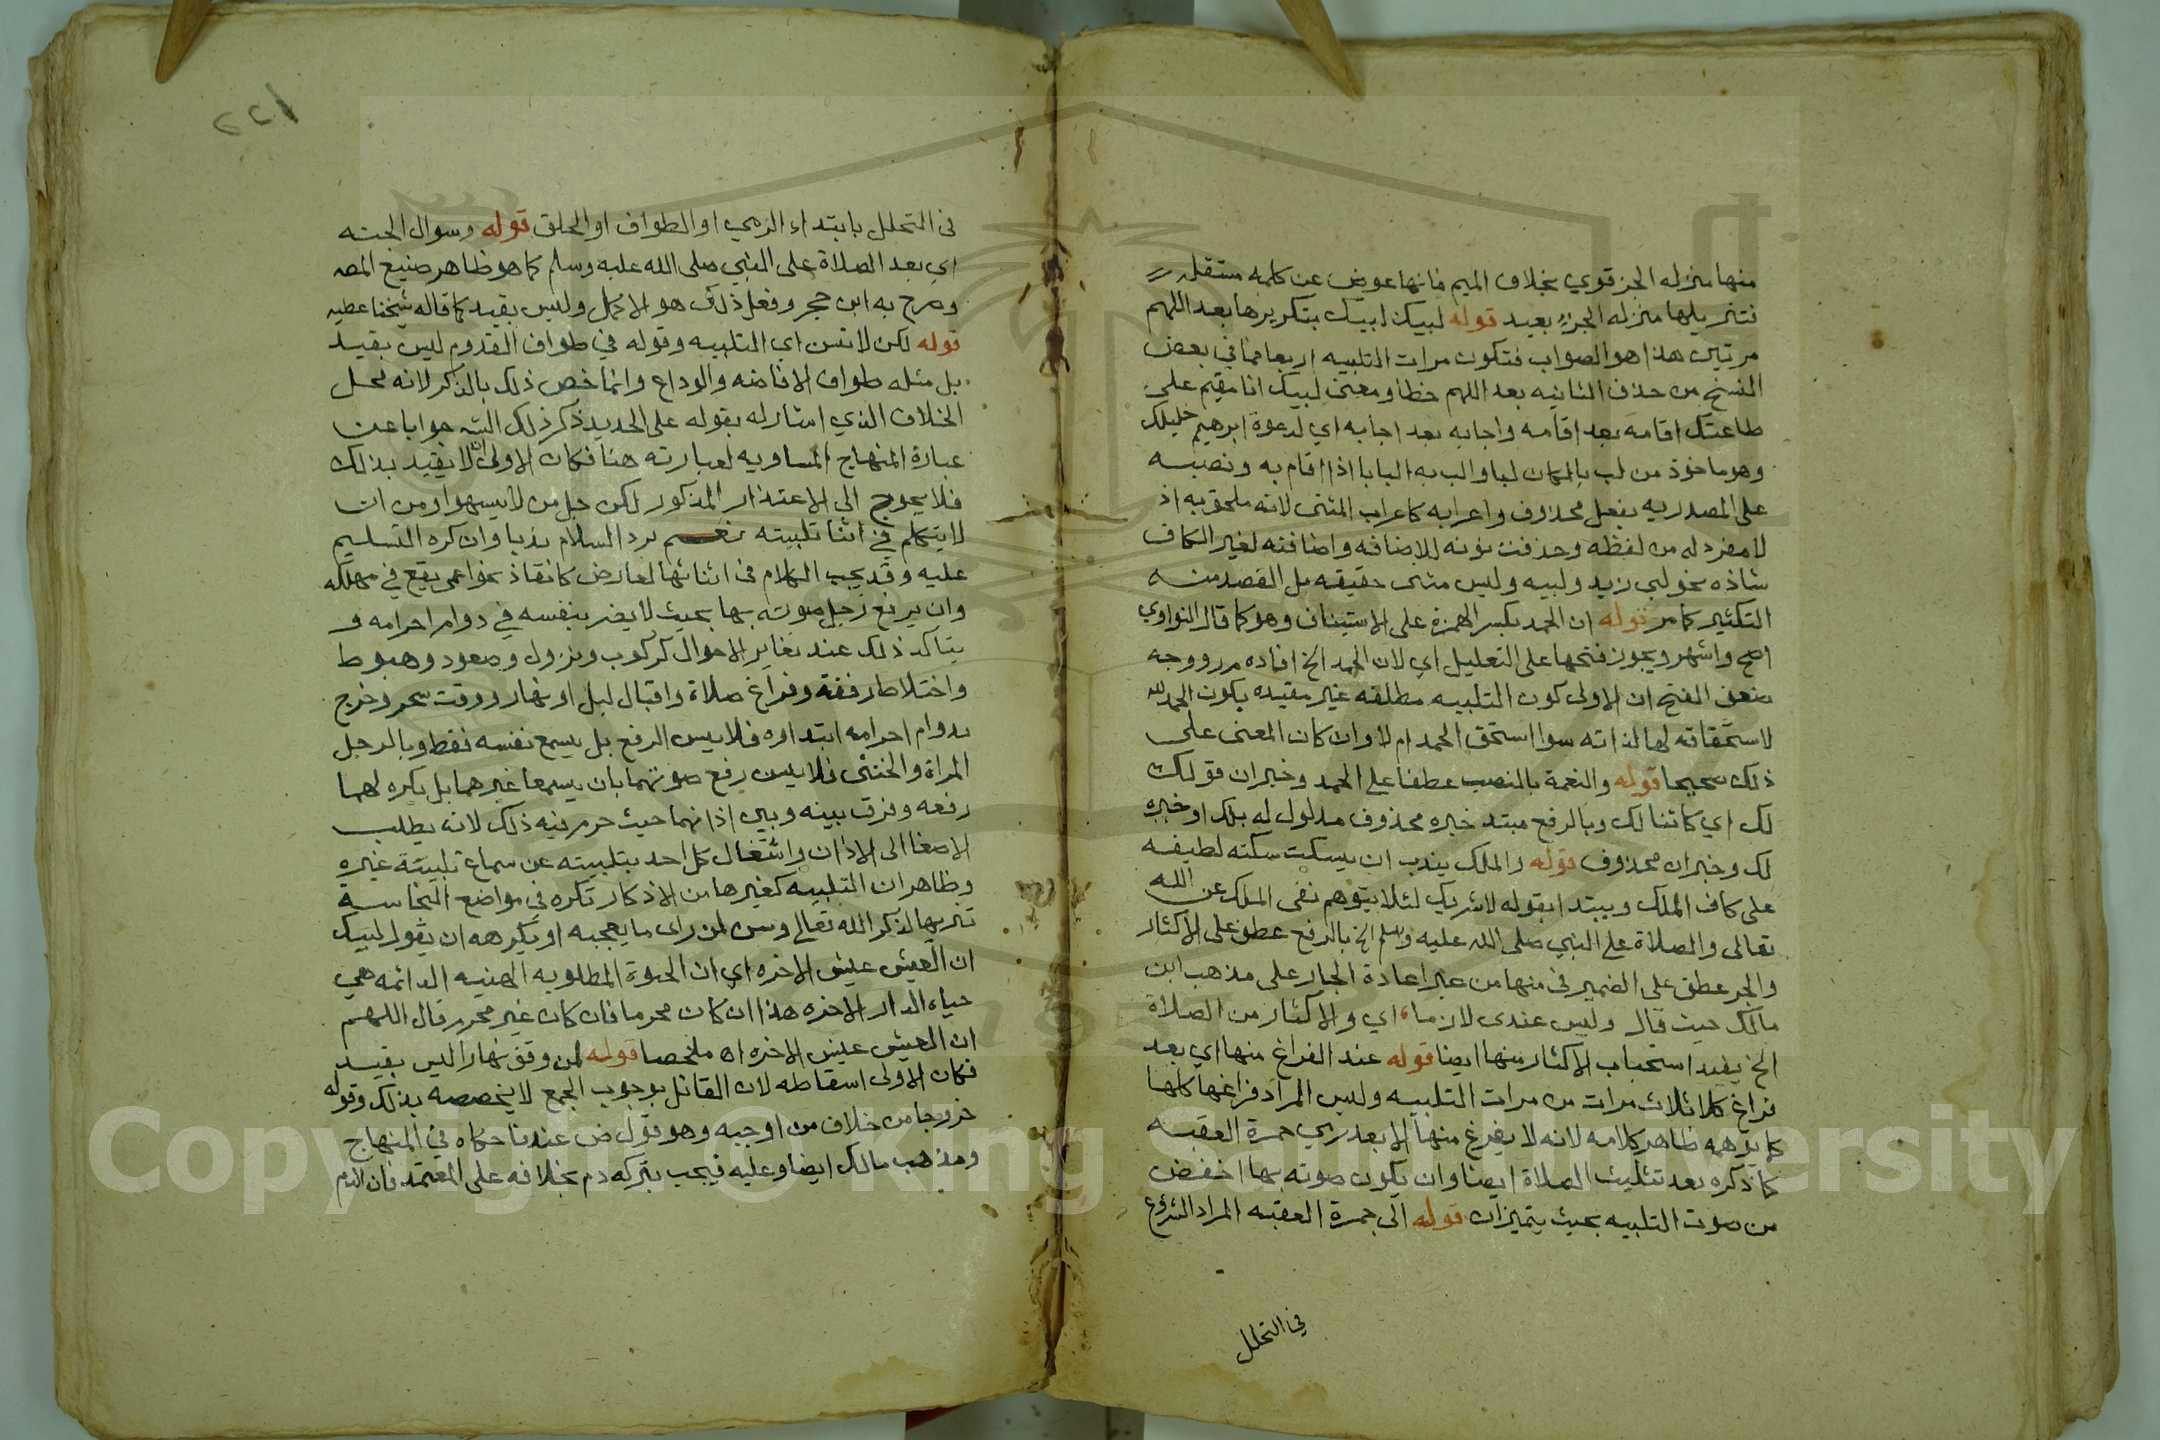 منها منزله الجز قوي بخلاف الميم فانها عوض عن كلمه مستقله
فتنزيلها منزله الجزء بعيد قوله لبيك لبيك بتكريرها بعد اللهم
مرتين هذا هو الصواب فتكون مرات التلبيه اربعا فما في بعض
النسخ من حذف الثانيه بعد اللهم خطا ومعنى لبيك انا مقيم على
طاعتك اقامة بعد اقامه واجابه بعد اجابه اي لدعوة ابرهيم خليلك
وهو ماخوذ من لب بالمكان لبا والب به البابا اذا اقام به ونصبه
على المصدريه بفعل محذوف واعرابه كاعراب المثنى لانه ملحق به اذ
لا مفرد له من لفظه وحذفت نونه للاضافه واضافته لغير الكاف
شاذه نحو لبي زيد ولبيه وليس مثنى حقيقه بل القصد منه
التكثير كما مر قوله ان الحمد بكسر الهمزة على الاستيناف وهو كما قال النواوي
اصح واشهر ويجوز فتحها على التعليل اي لان الحمد الخ افاده م ر ووجه
ضعف الفتح ان الاولى كون التلبيه مطلقه غير مقيده بكون الحمد لله
لاستحقاقه لها لذاته سوا استحق الحمد ام لا وان كان المعنى على
ذلك صحيحا قوله والنعمة بالنصب عطفا على الحمد وخبر ان قولك
لك اي كائنا لك وبالرفع مبتد خبره محذوف مدلول له بلك او خبره
لك وخبر ان محذوف قوله والملك يندب ان يسكت سكته لطيفه
على كاف الملك ويبتدا بقوله لا شريك لئلا يتوهم نفى الملك عن الله
تعالى والصلاة على النبي صلى الله عليه وسلم الخ بالرفع عطف على الاكثار
والجر عطف على الضمير في منها من غير اعادة الجار على مذهب ابن
مالك حيث قال وليس عندى لازما اي والاكثار من الصلاة
الخ يفيد استحباب الاكثار منها ايضا قوله عند الفراغ منها اي بعد
فراغ كل ثلاث مرات من مرات التلبيه وليس المراد فراغها كلها
كما يوهمه ظاهر كلامه لانه لا يفرغ منها الا بعد رمي جمرة العقبه
كما ذكره بعد تثليث الصلاة ايضا وان يكون صوته بها اخفض
من صوت التلبيه بحيث يتميزان قوله الى جمرة العقبه المراد الشروع
في التحلل
٢٢١
في التحلل بابتداء الرمي او الطواف او الحلق قوله وسوال الجنه
اي بعد الصلاة على النبي صلى الله عليه وسلم كما هو ظاهر صنيع المصـ
وصرح به ابن حجر وفعل ذلك هو الاكمل وليس بقيد كما قاله شيخنا عطيه
قوله لكن لا تسن اي التلبيه وقوله في طواف القدوم ليس بقيد
بل مثله طواف الافاضه والوداع وانما خص ذلك بالذكر لانه محل
الخلاف الذي اشار له بقوله على الجديد ذكر ذلك جوابا عن
عبارة المنهاج المساويه لعبارته هنا فكان الاولى ان لا يقيد بذلك
فلا يحوج الى الاعتذار المذكور لكن جل من لا يسهوا ومن ان
لا يتكلم في اثنا تلبيته نعم يرد السلام ندبا وان كره التسليم
عليه وقد يجب الكلام في اثنائها لعارض كانقاذ نحو اعمى يقع في مهلكه
وان يرفع رجل صوته بها بحيث لا يضر بنفسه في دوام احرامه و
يتاكد ذلك عند تغاير الاحوال كركوب ونزول وصعود وهبوط
واختلاط رفقة وفراغ صلاة واقبال ليل او نهار ووقت سحر وخرج
بدوام احرامه ابتداوه فلا يسن الرفع بل يسمع نفسه فقط وبالرجل
المراة والخنثى فلا يسن رفع صوتهما بان يسمعا غيرهما بل يكره لهما
رفعه وفرق بينه وبين اذانهما حيث حرم فيه ذلك لانه يطلب
الاصغا الى الاذان واشتغال كل احد بتلبيته عن سماع تلبية غيره
وظاهر ان التلبيه كغيرها من الاذكار تكره في مواضع النجاسة
تنزيها لذكر الله تعالى وسن لمن راى ما يعجبه او يكرهه ان يقول لبيك
ان العيش عيش الاخره اي ان الحيوة المطلوبه الهنيه الدائمه هي
حياه الدار الاخره هذا ان كان محرما فان كان غير محرم قال اللهم
ان العيش عيش الاخره اه ملخصا قوله لمن وقف نهارا ليس بقيد
فكان الاولى اسقاطه لان القائل بوجوب الجمع لا يخصصه بذلك وقوله
خروجا من خلاف من اوجبه وهو قول ض عندنا حكاه في المنهاج
ومذهب مالك ايضا وعليه فيجب بتركه دم بخلافه على المعتمد فان الدم
Copyright © King Saud University